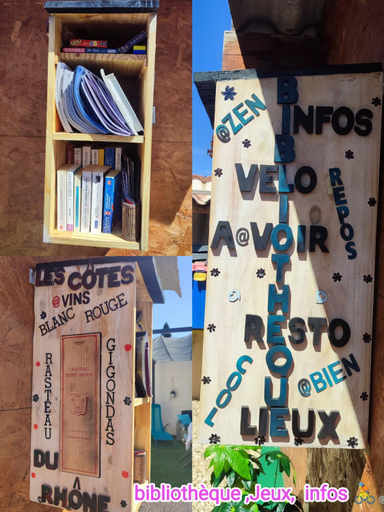 @ZEN
BIBLIOTHEQUE
INFOS
VELO
REPOS
A@VOIR
RESTO
@BIEN
COOL
LIEUX
LES CÔTES
@VINS
BLANC ROUGE
RASTEAU
GIGONDAS
DU
RHÔNE
bibliothèque ,Jeux, infos